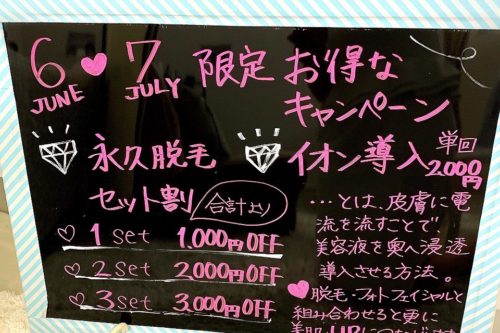 6♥7 限定 お得な
JUNE JULY キャンペーン
永久脱毛
セット割 合計より
♡ 1 set 1,000円OFF
♡ 2 set 2,000円OFF
♡ 3 set 3,000円OFF
イオン導入 単回
2,000円
…とは、皮膚に電
流を流すことで、
美容液を奥へ浸透
導入させる方法。
♥脱毛・フォトフェイシャルと
組み合わせると更に
美肌UP